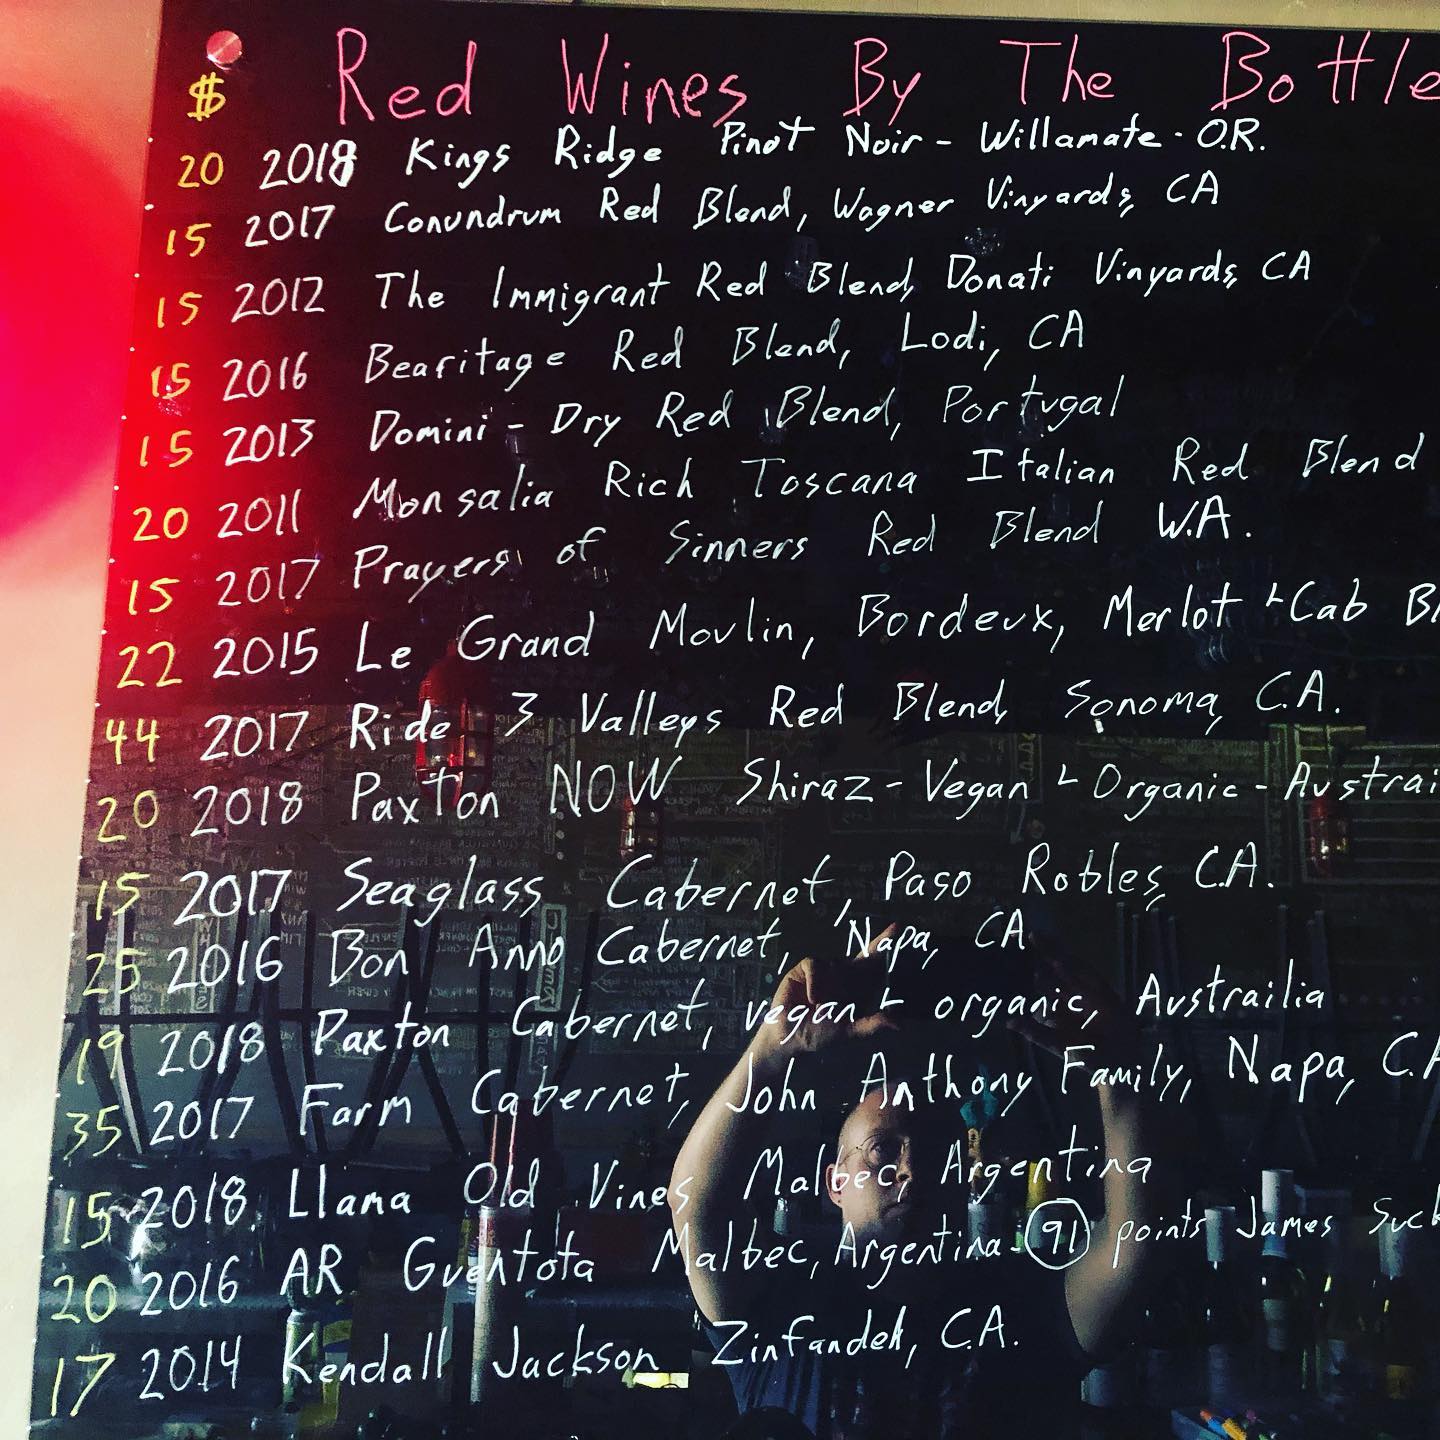 $ Red Wines By The Bottle
20 2018 Kings Ridge Pinot Noir - Willamate - O.R.
15 2017 Conundrum Red Blend, Wagner Vinyards, CA
15 2012 The Immigrant Red Blend, Donati Vinyards, CA
15 2016 Bearitage Red Blend, Lodi, CA
15 2013 Domini - Dry Red Blend, Portugal
20 2011 Monsalia Rich Toscana Italian Red Blend
15 2017 Prayers of Sinners Red Blend W.A.
22 2015 Le Grand Moulin, Bordeux, Merlot + Cab
44 2017 Ride 3 Valleys Red Blend, Sonoma, C.A.
20 2018 Paxton NOW Shiraz - Vegan + Organic - Austrai
15 2017 Seaglass Cabernet, Paso Robles, C.A.
25 2016 Bon Anno Cabernet, Napa, CA
19 2018 Paxton Cabernet, vegan + organic, Austrailia
35 2017 Farm Cabernet, John Anthony Family, Napa, C.A
15 2018 Llama Old Vines Malbec, Argentina
20 2016 AR Guentota Malbec, Argentina - 91 points James Suck
17 2014 Kendall Jackson Zinfandel, C.A.